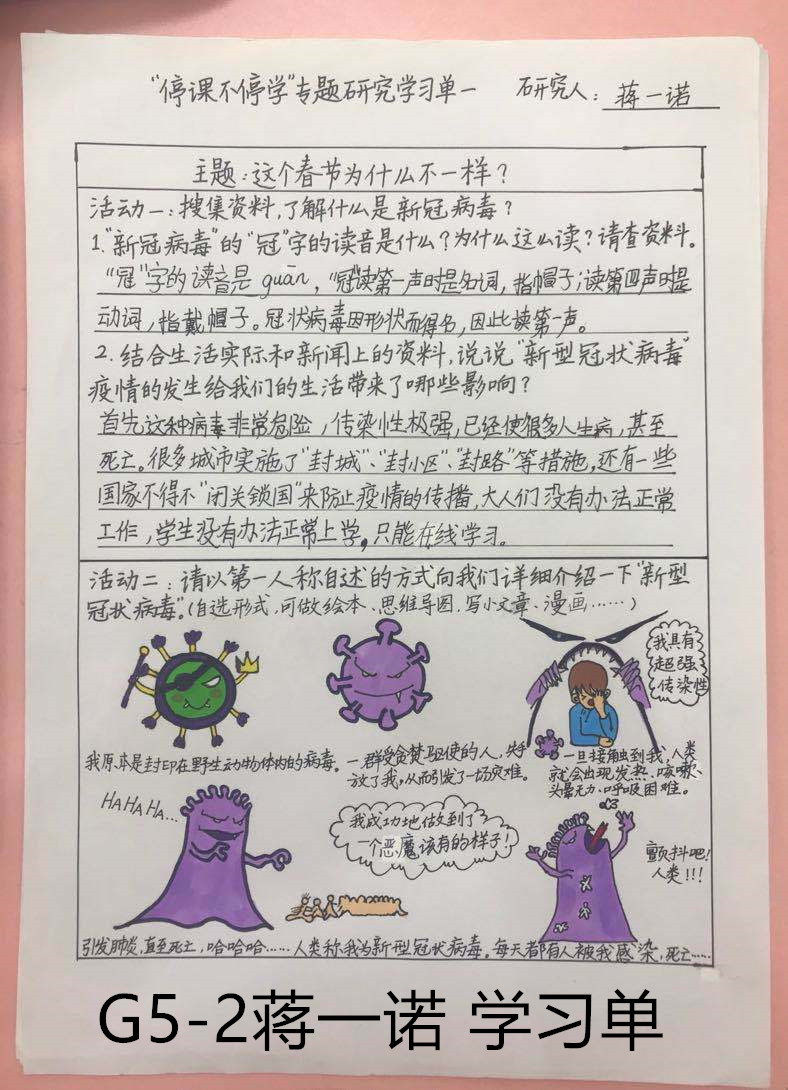 “停课不停学”专题研究学习单一 研究人：蒋一诺
主题：这个春节为什么不一样？
活动一：搜集资料，了解什么是新冠病毒？
1.“新冠病毒”的“冠”字的读音是什么？为什么这么读？请查资料。
“冠”字的读音是guān，“冠”读第一声时是名词，指帽子；读第四声时是
动词，指戴帽子。冠状病毒因形状而得名，因此读第一声。
2.结合生活实际和新闻上的资料，说说“新型冠状病毒”
疫情的发生给我们的生活带来了哪些影响？
首先这种病毒非常危险，传染性极强，已经使很多人生病，甚至
死亡。很多城市实施了“封城”、“封小区”、“封路”等措施，还有一些
国家不得不“闭关锁国”来防止疫情的传播，大人们没有办法正常
工作，学生没有办法正常上学，只能在线学习。
活动二：请以第一人称自述的方式向我们详细介绍一下“新型
冠状病毒”。（自选形式，可做绘本、思维导图，写小文章、漫画……）
我具有
超强
传染性
我原本是封印在野生动物体内的病毒。
一群受贪婪驱使的人，失手
放了我，从而引发了一场灾难。
一旦接触到我，人类
就会出现发热、咳嗽、
头晕无力、呼吸困难。
HAHAHA...
我成功地做到了
一个恶魔该有的样子！
颤抖吧！
人类！！！
引发肺炎，直至死亡，哈哈哈……人类称我为新型冠状病毒。每天都有人被我感染，死亡……
G5-2蒋一诺 学习单